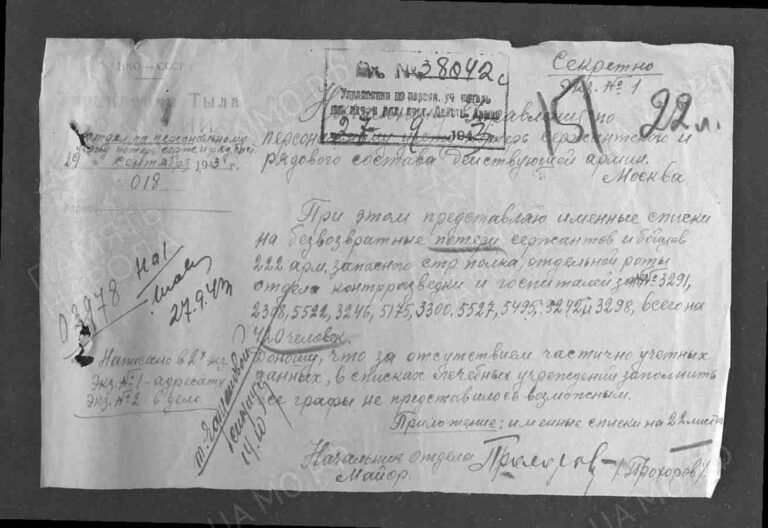 НКО — СССР
Управление Тыла
Отдел по персональному
учету потерь серж. и ряд.
сентября 1943 г.
018
Вх. № 38042 с
Управление по персон. уч. потерь
1943
Секретно
Экз. № 1
22 л.
рядового состава действующей армии.
Москва.
При этом представляю именные списки
на безвозвратные потери сержантов и бойцов
222 арм. запасного стр. полка, отдельной роты
отдела контрразведки и госпиталей за №№ 3291,
2308, 5522, 3246, 5175, 3300, 5527, 5495, 3242 и 3298, всего на
420 человек.
Доношу, что за отсутствием частично учетных
данных, в списках лечебных учреждений заполнить
все графы не представилось возможным.
Приложение: именные списки на 22 листах
Начальник отдела
Майор.
Прохоров /Прохоров/.
03978
27.9.43
Написано в 2х экз.
Экз. № 1 – адресату
Экз. № 2 в дело.
14.10